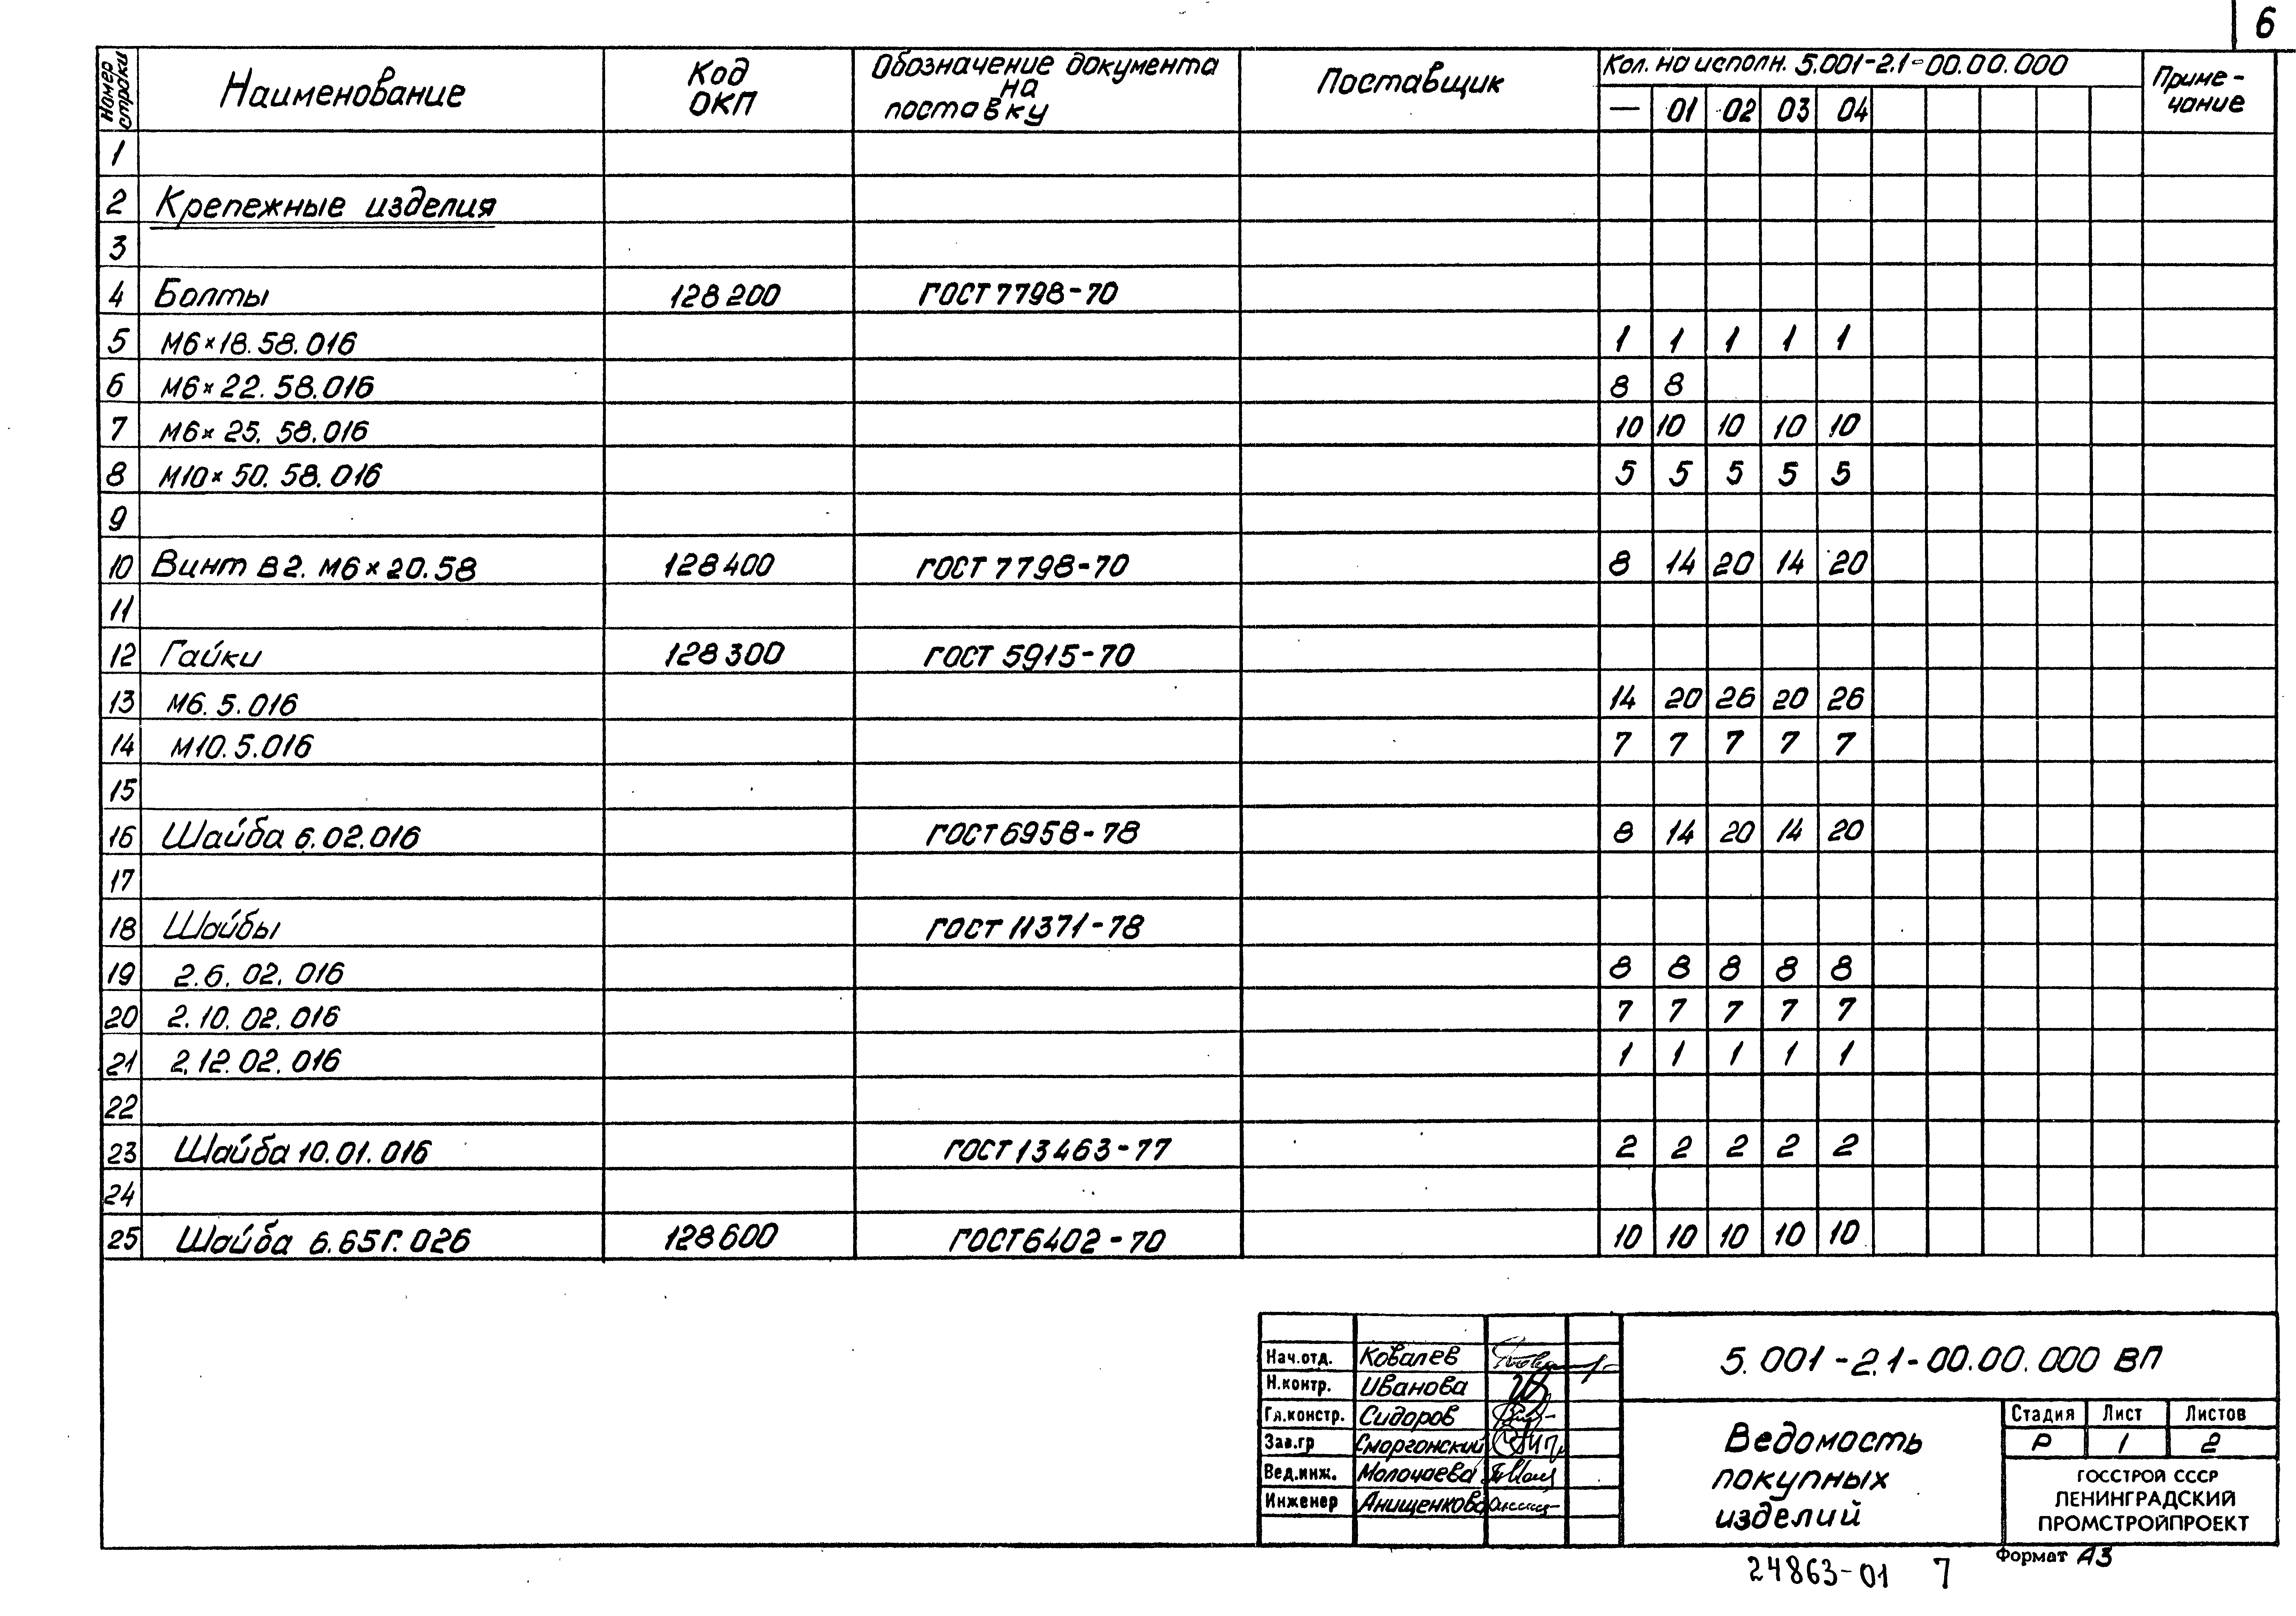 6
Номер строки Наименование Код ОКП Обозначение документа на поставку Поставщик Кол. на исполн. 5.001-2.1-00.00.000 Приме-чание
— 01 02 03 04
1
2 Крепежные изделия
3
4 Болты 128200 ГОСТ 7798-70
5 М6×18.58.016 1 1 1 1 1
6 М6×22.58.016 8 8
7 М6×25.58.016 10 10 10 10 10
8 М10×50.58.016 5 5 5 5 5
9
10 Винт В2.М6×20.58 128400 ГОСТ 7798-70 8 14 20 14 20
11
12 Гайки 128300 ГОСТ 5915-70
13 М6.5.016 14 20 26 20 26
14 М10.5.016 7 7 7 7 7
15
16 Шайба 6.02.016 ГОСТ 6958-78 8 14 20 14 20
17
18 Шайбы ГОСТ 11371-78
19 2.6.02.016 8 8 8 8 8
20 2.10.02.016 7 7 7 7 7
21 2.12.02.016 1 1 1 1 1
22
23 Шайба 10.01.016 ГОСТ 13463-77 2 2 2 2 2
24
25 Шайба 6.65Г.026 128600 ГОСТ 6402-70 10 10 10 10 10
Нач.отд. Ковалев
Н.контр. Иванова
Гл.констр. Сидоров
Зав.гр Сморгонский
Вед.инж. Молочаева
Инженер Анищенкова
5.001-2.1-00.00.000 ВП
Ведомость
покупных
изделий
Стадия Лист Листов
Р 1 2
ГОССТРОЙ СССР
ЛЕНИНГРАДСКИЙ
ПРОМСТРОЙПРОЕКТ
Формат А3
24863-01 7